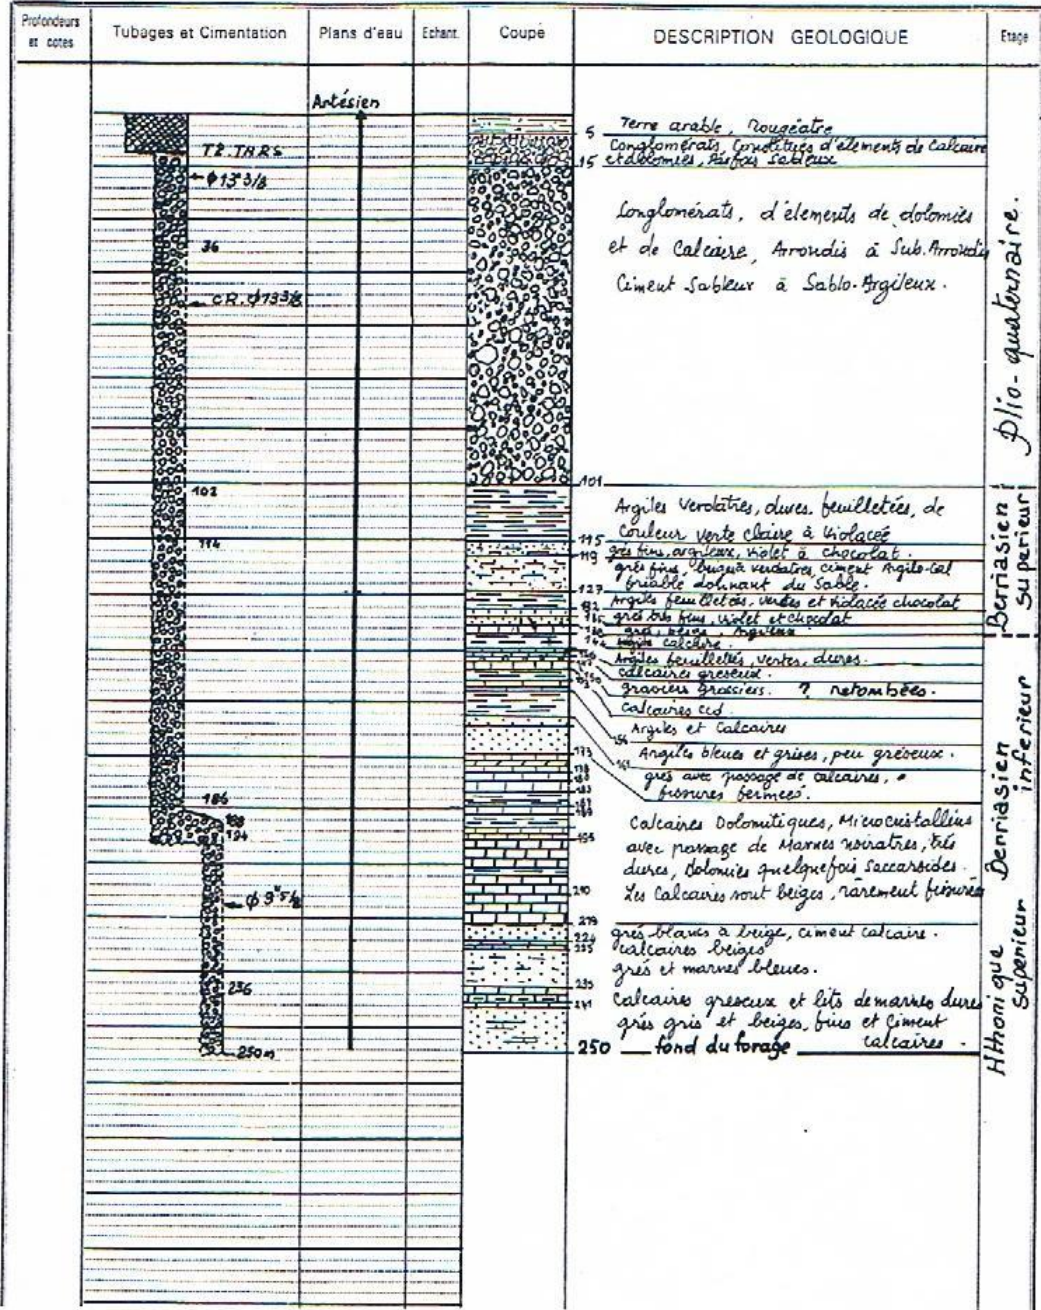 Profondeurs et cotes
Tubages et Cimentation
Plans d'eau
Echant.
Coupe
DESCRIPTION GEOLOGIQUE
Etage
Artésien
T.P.
ϕ 13" 3/8
36
C.R. ϕ 13 3/8
102
114
186
188
194
ϕ 9" 5/8
236
250 m
5
15
101
115
119
127
173
178
195
210
219
235
241
250
Terre arable, Rougeatre
Conglomérats, Constitués d'élements de Calcaire
et dolomies, Parfois Sableux
Conglomérats, d'élements de dolomies
et de Calcaire, Arrondis à Sub.Arrondis
Ciment Sableux à Sablo-Argileux.
Argiles Verdatres, dures, feuilletées, de
Couleur verte claire à Violacée
grès fins, argileux, violet à chocolat.
grès fins, verdatres, ciment Argilo-Cal
friable donnant du Sable.
Argiles feuilletées, vertes et violacée chocolat
grès très fins, violet et chocolat
grès, beige, Argileux
calcaire.
Argiles feuilletés, vertes, dures.
calcaires greseux.
graviers grossiers. ? retombées.
Calcaires
154 Argiles et Calcaires
161 Argiles bleues et grises, peu gréseux.
grès avec passage de calcaires,
fissures fermées.
Calcaires Dolomitiques, Microcristallins
avec passage de Marnes noiratres, très
dures, Dolomies quelquefois Saccaroides.
Les Calcaires sont beiges, rarement fissurés
grès blancs à beige, ciment calcaire.
calcaires beiges
grès et marnes bleues.
Calcaires greseux et lits de marnes dures
grès gris et beiges, fins et Ciment
calcaires.
fond du forage
plio-quaternaire.
Berriasien
Superieur
Berriasien
inferieur
Hthonique
Superieur